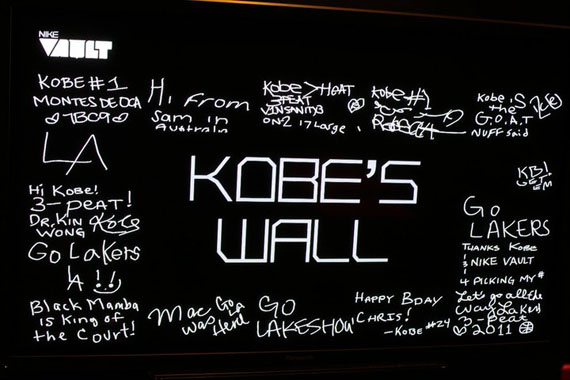 NIKE
VAULT
KOBE #1
MONTES DE OCA
TBC9
Hi From
Sam in
Australia
Kobe > HEAT
3PEAT
VINSANITY3
ON 2 17 Large
Kobe #1
Kobe iS
the
G.O.A.T
NUFF Said
LA
KOBE'S
WALL
KB!
Hi Kobe!
3-peat!
DR. KIN
WONG
Go Lakers
LA
Black Mamba
is King of
the Court!
Mac
was Here!
GO
LAKESHOW
HAPPY BDAY
CHRIS!
-KOBE #24
Go
LAKERS
THANKS KOBE
NIKE VAULT
4 PICKING MY #
Let's go all the
way Lakers
3-peat
2011